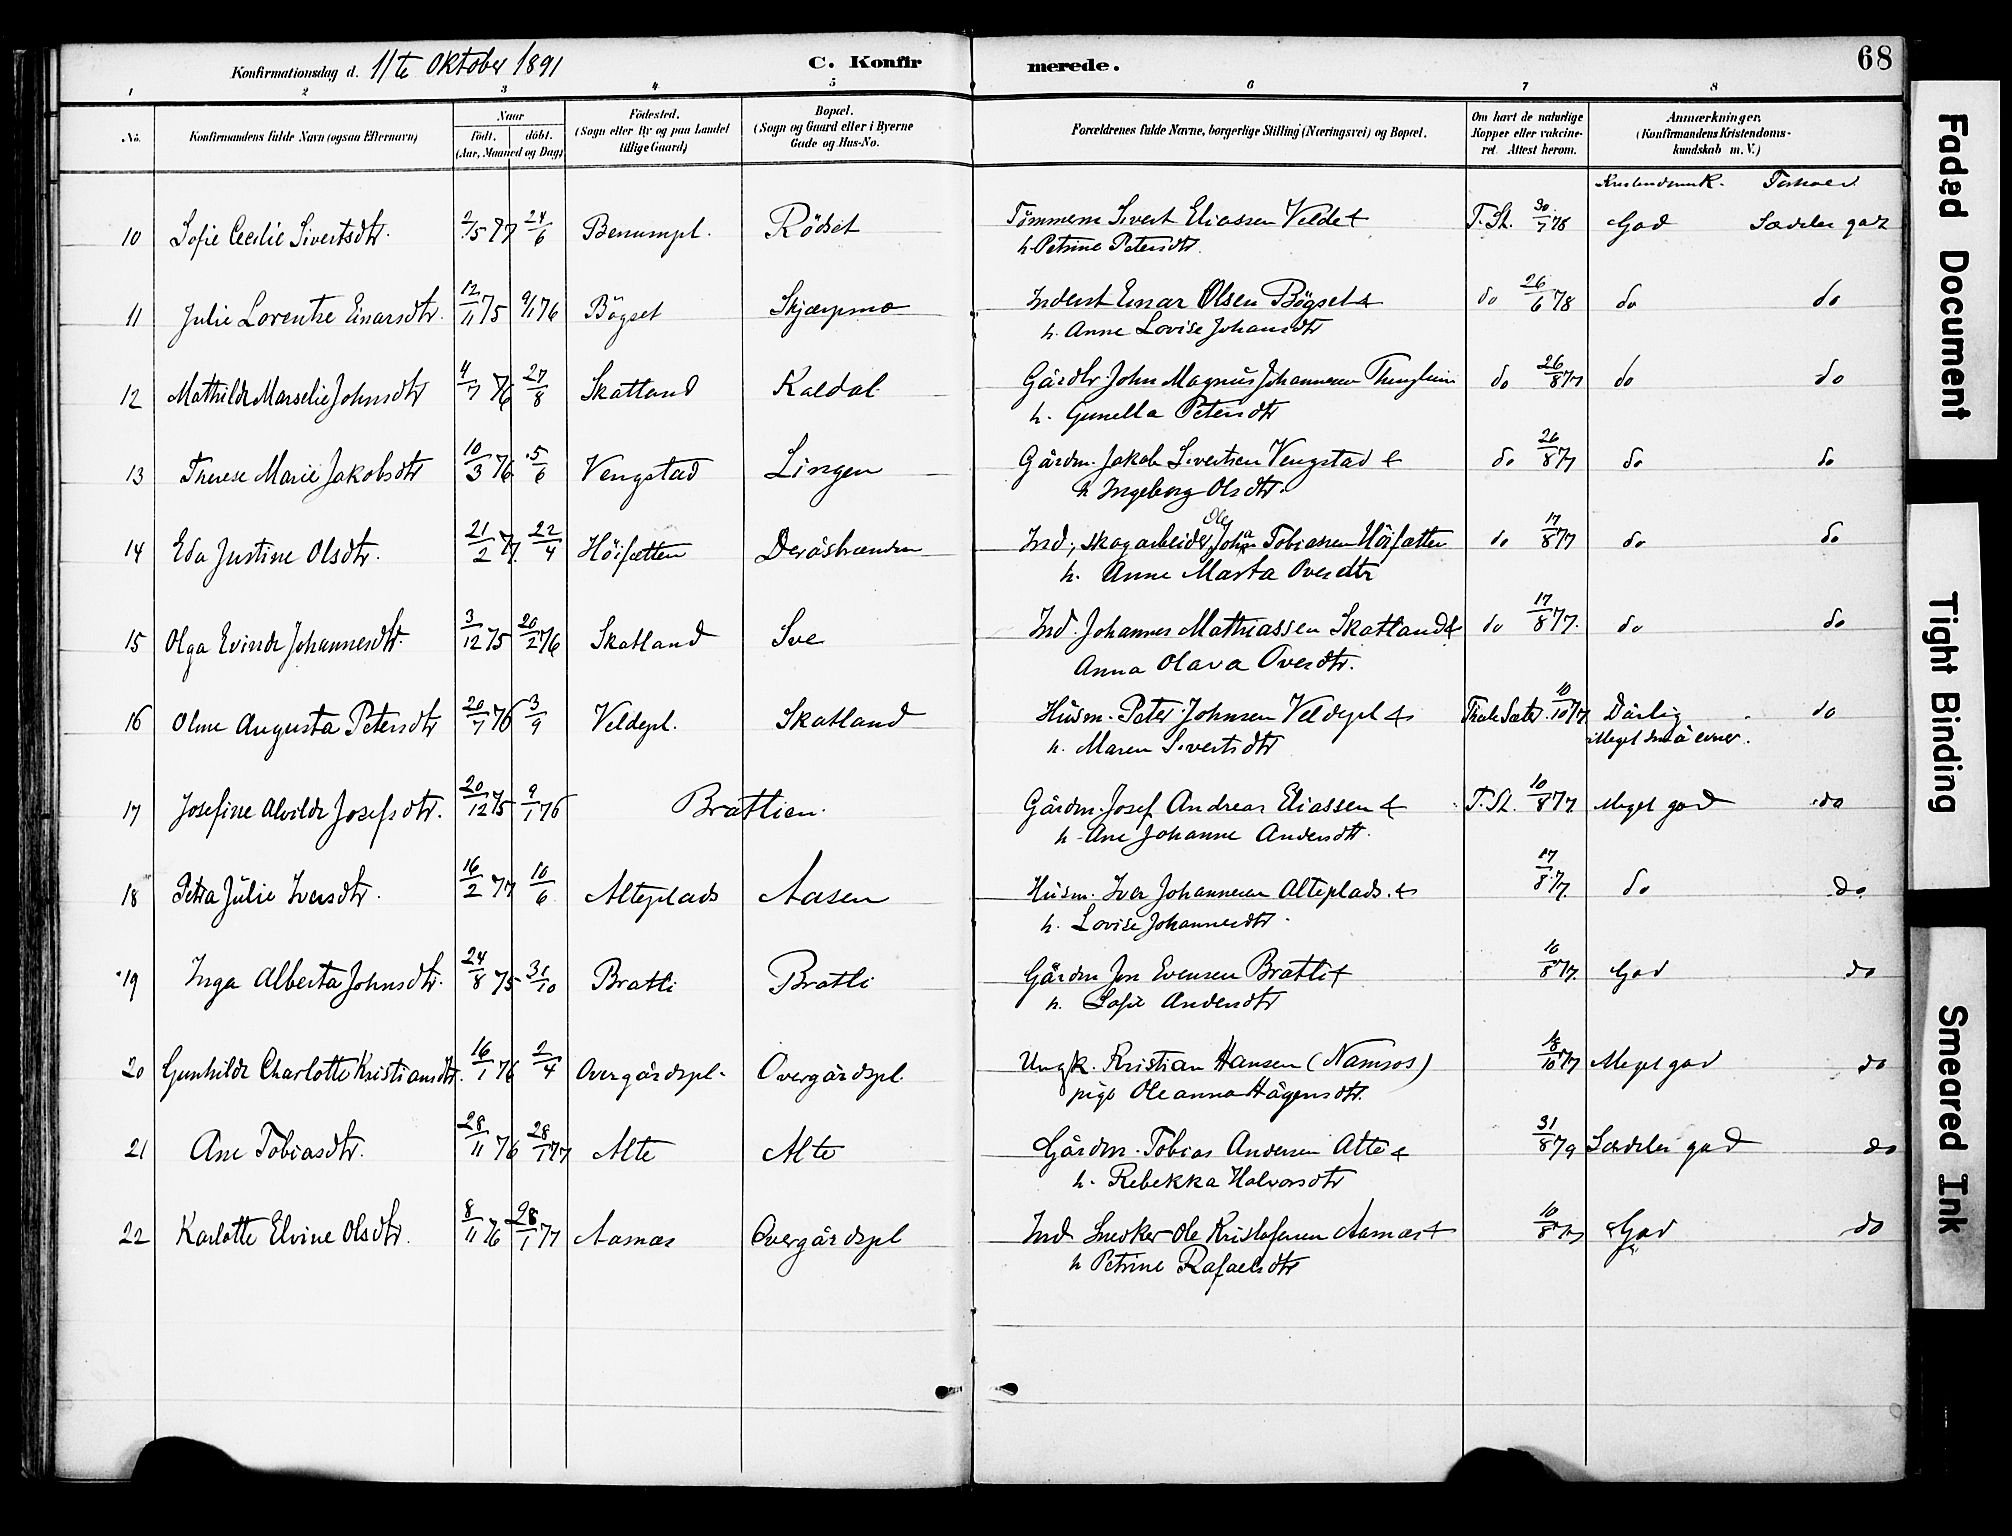 Konfirmationsdag d. 11te Oktober 1891
C. Konfirmerede.
68
1 2 3 4 5 6 7 8
No.
Konfirmandens fulde Navn (ogsaa Efternavn)
Naar
födt. döbt.
(Aar, Maaned og Dag)
Födested.
(Sogn eller By og paa Landet
tillige Gaard)
Bopæl.
(Sogn og Gaard eller i Byerne
Gade og Hus-No.
Forældrenes fulde Navne, borgerlige Stilling (Næringsvei) og Bopæl.
Om havt de naturlige
Kopper eller vakcine-
ret. Attest herom.
Anmærkninger.
(Konfirmandens Kristendoms-
kundskab m. V.)
Kristendomsk. Forhold
10 Sofie Cecilie Sivertsdtr. 2/5 77 24/6 Benumpl. Rödset Tömmerm Sivert Eliassen Veldet T. St. 30/7 78 God Særdeles godt
h. Petrine Petersdtr.
11 Julie Lorentse Einarsdtr. 12/11 75 9/1 76 Bögset Skjærpmo Inderst Einar Olsen Bögset & do 26/6 78 do do
h. Anne Lovise Johansdtr
12 Mathilde Marselie Johnsdtr 4/7 76 27/8 Skatland Kaldal Gårdbr. John Magnus Johannesen do 26/8 77 do do
h. Gunella Petersdtr
13 Therese Marie Jakobsdtr 10/3 76 5/6 Vengstad Lingen Gårdm. Jakob Sivertsen Vengstad & do 26/8 77 do do
h Ingeborg Olsdtr.
14 Eda Justine Olsdtr. 21/2 77. 22/4 Höifætten Deråstranden Ind., skogarbeider Ole Johan Tobiassen Höifætten do 17/8 77 do do
h. Anne Marta Oversdtr
15 Olga Evinde Johannesdtr. 3/12 75 20/2 76 Skatland Sve Ind. Johannes Mathiassen Skatland & do 17/8 77. do do
Anna Olava Oversdtr.
16 Oline Augusta Petersdtr 20/7 76 3/9 Veldepl. Skatland Husm. Peter Johnsen Veldepl & 10/10 77 Dårlig do
h. Maren Sivertsdtr Meget små evner.
17 Josefine Alvilde Josefsdtr. 20/12 75 9/1 76 Brattlien. Gårdm. Josef Andreas Eliassen & T. St. 10/8 77 Meget god do
h. Ane Johanne Andersdtr.
18 Petra Julie Iversdtr. 16/2 77 10/6 Alteplads Aasen Husm. Iver Johannesen Alteplads. & 17/8 77. do do.
h. Lovise Johannesdtr.
19 Inga Alberta Johnsdtr. 24/8 75 31/10 Bratli Bratli Gårdm Jon Evensen Bratli & 10/8 77. God do
h. Sofie Andersdtr
20 Gunhilde Charlotte Kristiansdtr. 16/1 76 2/4 Overgårdspl. Overgårdspl. Ungk. Kristian Hansen (Namsos) 18/10 77 Meget god do
pige Oleanna Hågensdtr.
21 Ane Tobiasdtr. 28/11 76 28/1 77 Alte Alte Gårdm. Tobias Andersen Alte & 31/8 79 Særdeles god do
h. Rebekka Halvorsdtr
22 Karlotte Elvine Olsdtr. 8/11 76 28/1 77 Aamas Overgårdspl Ind. Snedker Ole Kristofersen Aamas & 10/8 77 God do
h Petrine Rafaelsdtr
Faded Document
Tight Binding
Smeared Ink